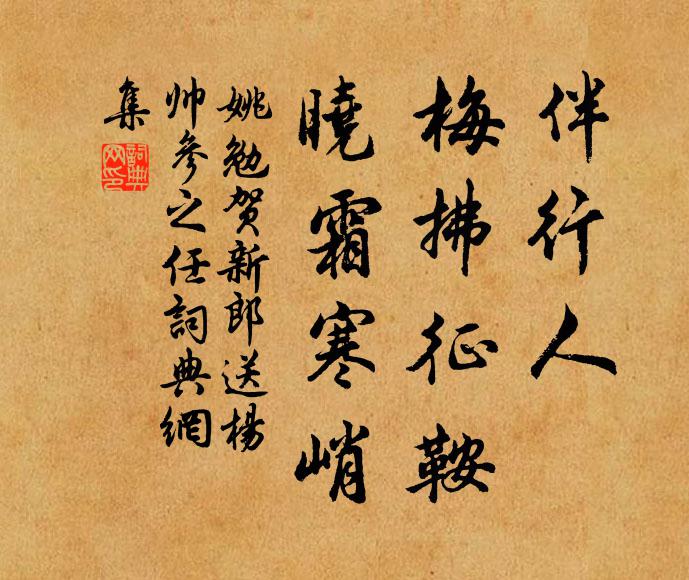 伴行人
梅拂征鞍
曉霜寒峭
姚勉賀新郎送楊
帅參之任詞典網
集
詞典網印